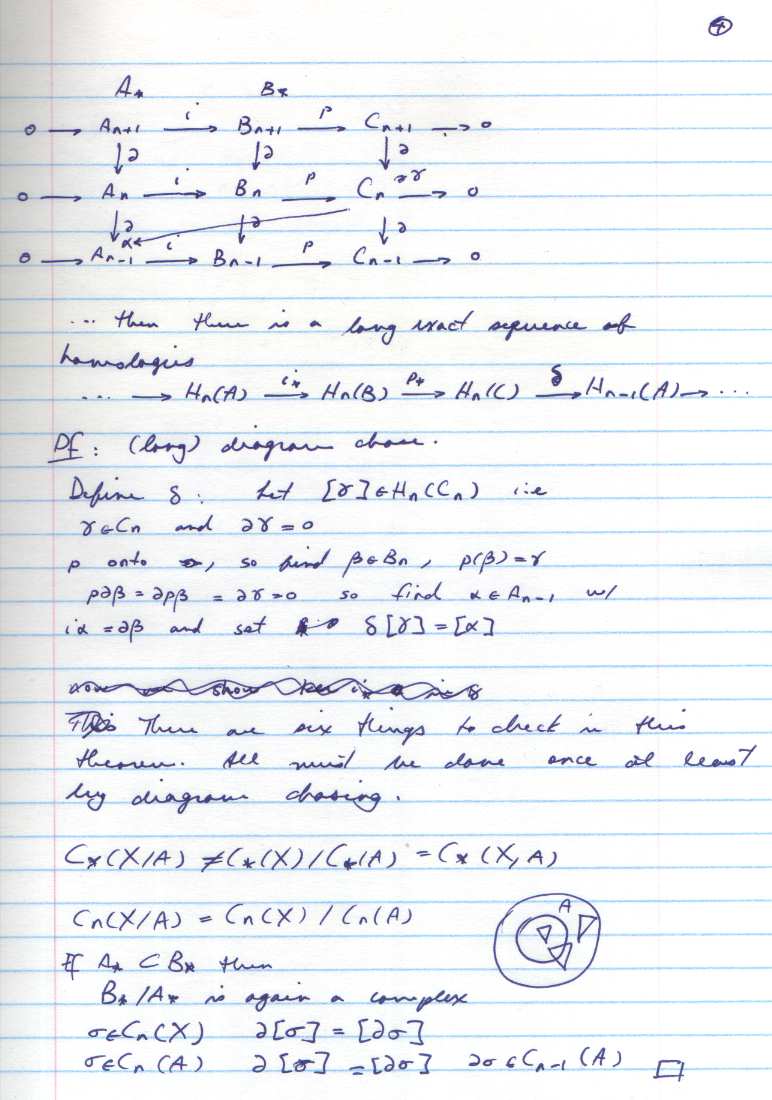 4
A* B*
0 → Aₙ₊₁ —i→ Bₙ₊₁ —p→ Cₙ₊₁ → 0
↓∂ ↓∂ ↓∂
0 → Aₙ —i→ Bₙ —p→ Cₙ ∂γ → 0
↓∂ ↓∂ ↓∂
0 → α Aₙ₋₁ —i→ Bₙ₋₁ —p→ Cₙ₋₁ → 0
... then there is a long exact sequence of
homologies
... → Hₙ(A) —i*→ Hₙ(B) —p*→ Hₙ(C) —δ→ Hₙ₋₁(A) → ...
Pf: (long) diagram chase.
Define δ: Let [γ]∈Hₙ(Cₙ) i.e
γ∈Cₙ and ∂γ=0
p onto, so find β∈Bₙ, p(β)=γ
p∂β=∂pβ = ∂γ=0 so find α∈Aₙ₋₁ w/
iα=∂β and set δ[γ]=[α]
show
There are six things to check in this
theorem. All must be done once at least
by diagram chasing.
C*(X/A) ≠ C*(X)/C*(A) = C*(X,A)
Cₙ(X/A) = Cₙ(X)/Cₙ(A)
A
If A* ⊂ B* then
B*/A* is again a complex
σ∈Cₙ(X) ∂[σ] = [∂σ]
σ∈Cₙ(A) ∂[σ] = [∂σ] ∂σ∈Cₙ₋₁(A) □